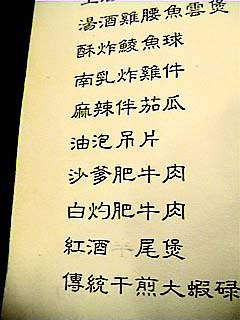 湯酒雞腰魚雲煲
酥炸鯪魚球
南乳炸雞件
麻辣伴茄瓜
油泡吊片
沙爹肥牛肉
白灼肥牛肉
紅酒牛尾煲
傳統干煎大蝦碌